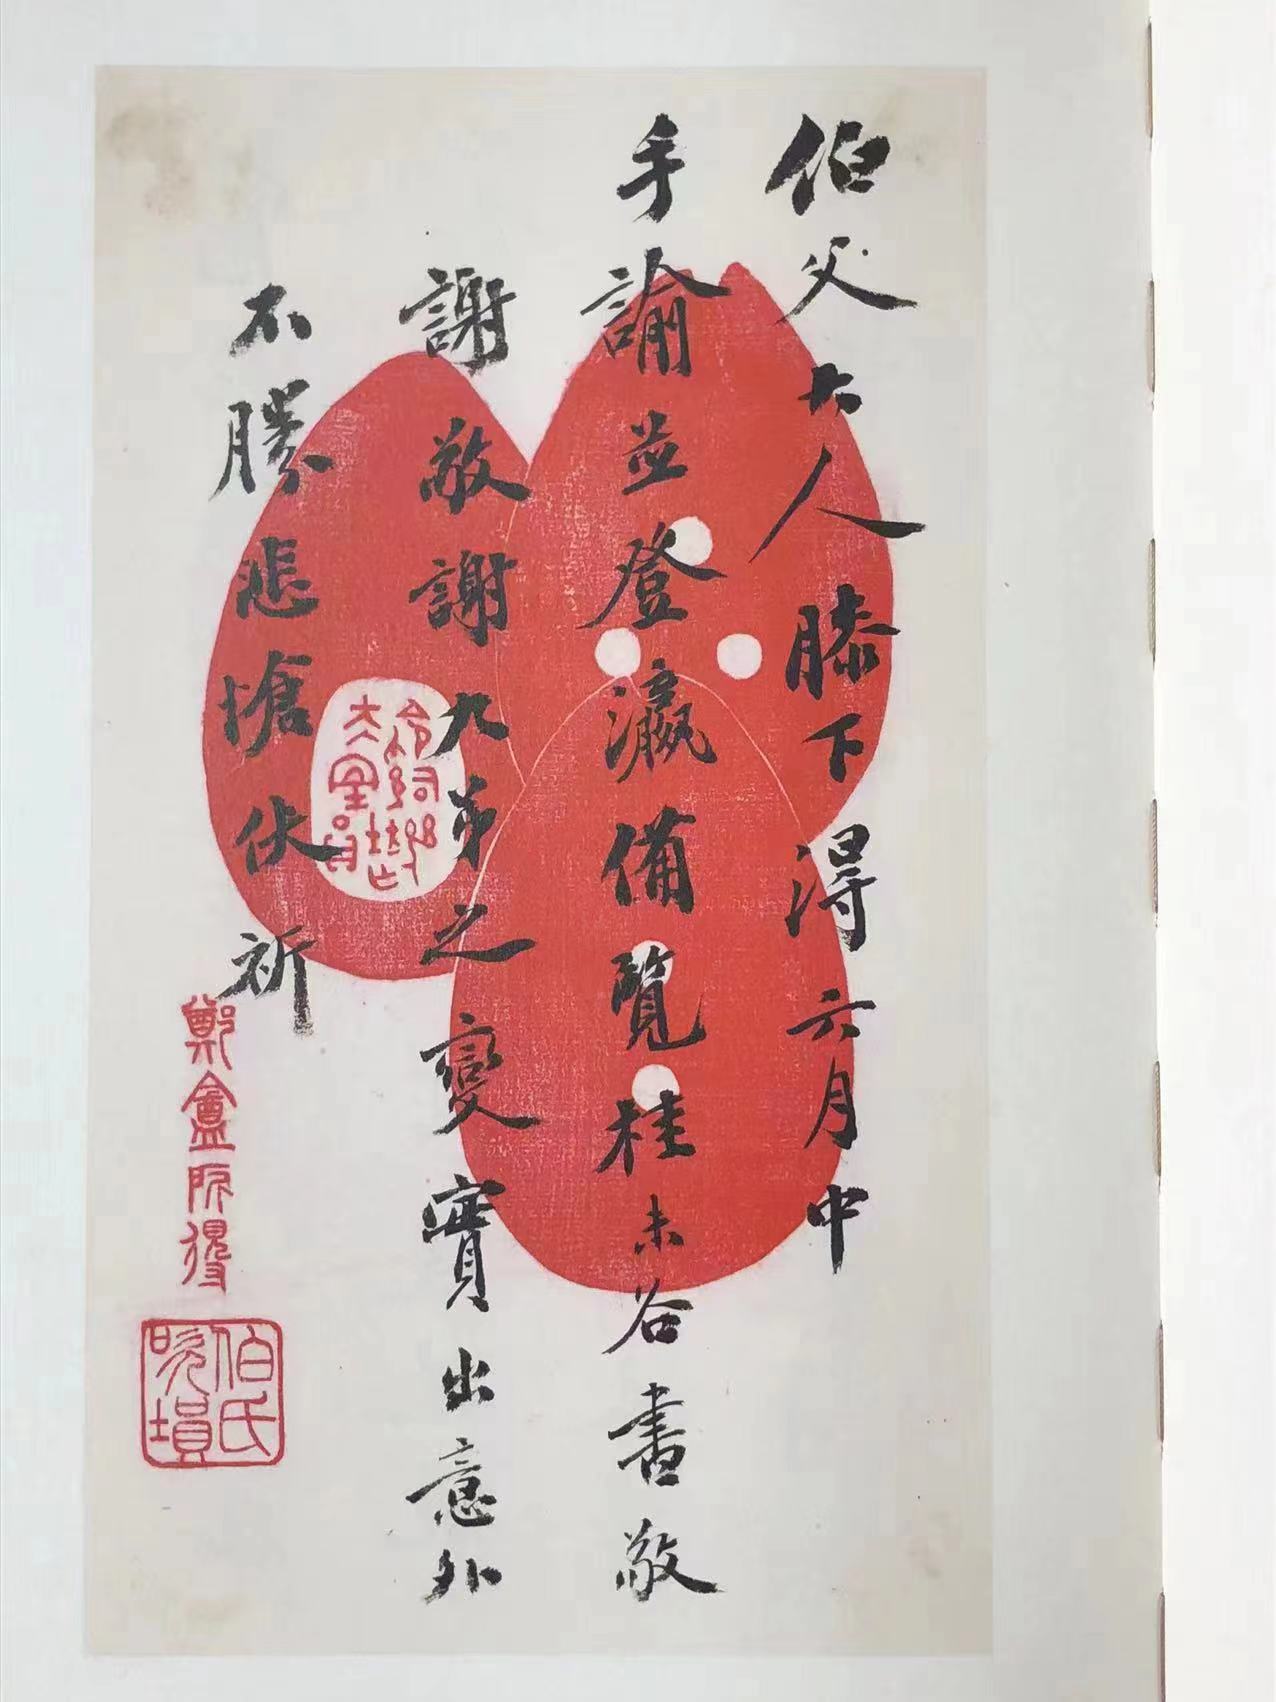 伯父大人膝下得六月中
手諭並登瀛備覽桂未谷書敬
謝敬謝九弟之變實出意外
不勝悲愴伏祈
鄭盦所得
伯氏
吹壎